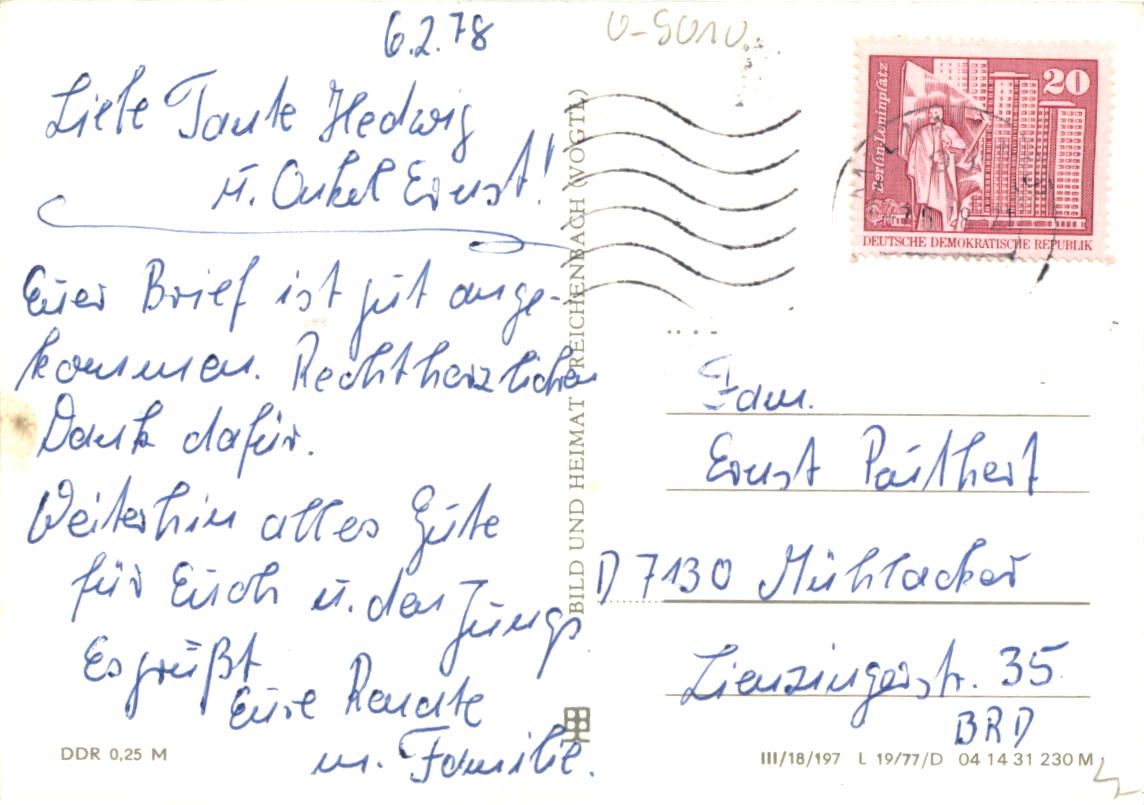 6.2.78
Liebe Tante Hedwig
u. Onkel Ernst!
Euer Brief ist gut ange-
kommen. Recht herzlichen
Dank dafür.
Weiterhin alles Gute
für Euch u. den Jungs
Es grüßt
Eure Renate
m. Familie.
DDR 0,25 M
BILD UND HEIMAT REICHENBACH (VOGTL)
Berlin-Leninplatz
20
DEUTSCHE DEMOKRATISCHE REPUBLIK
Fam.
Ernst
D 7130 Mühlacker
Lienzingerstr. 35
BRD
III/18/197 L 19/77/D 04 14 31 230 M